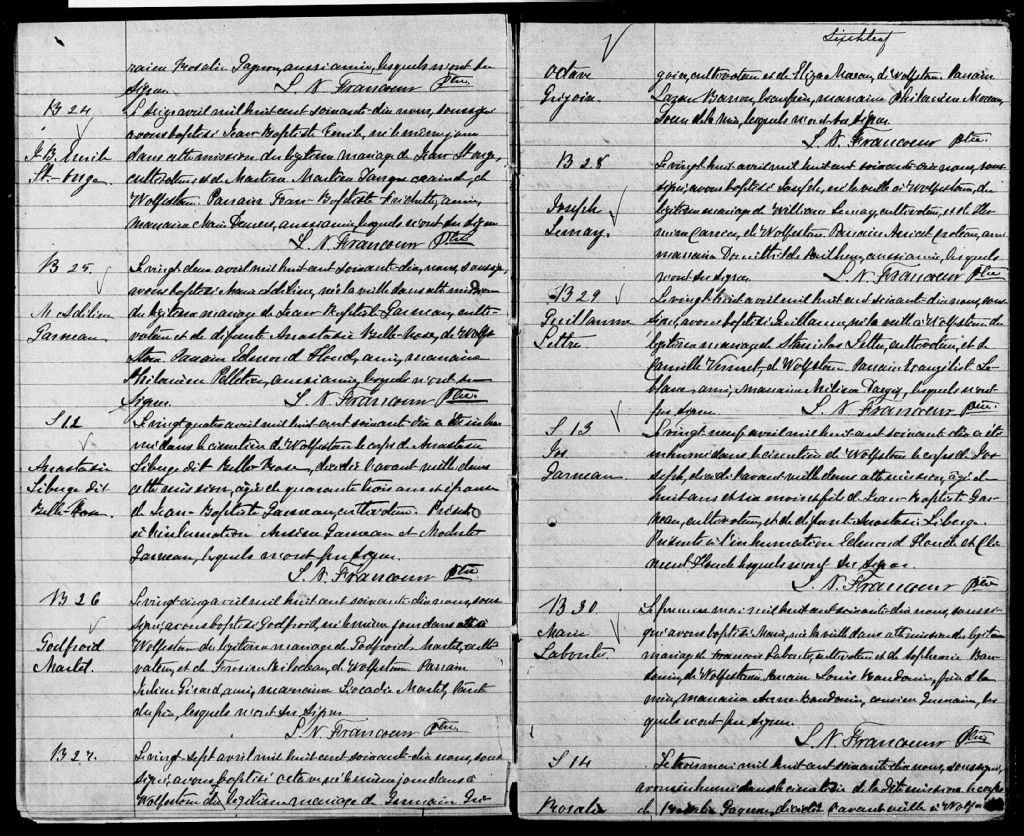 raine Rosalie Gagnon, aussi amie, lesquels n'ont su
signer. L. N. Francoeur Ptre
B 24
J. B. Emile
St-onge
Le seize avril mil huit cent soixante-dix nous, soussigné
avons baptisé Jean Baptiste Emile, né le même jour
dans cette mission du légitime mariage de Jean St onge,
cultivateur, et de Martine de
Wolfestown. Parrain Jean Baptiste ami,
marraine Marie aussi amie, lesquels n'ont su signer
L. N. Francoeur Ptre
B 25.
M. Adeline
Garneau.
Le vingt deux avril mil huit cent soixante-dix, nous, soussigné,
avons baptisé Marie Adeline, née la veille dans cette mission
du légitime mariage de Jean Baptiste Garneau, culti-
vateur et de défunte Anastasie Belle-Rose, de Wolfes-
town. Parrain Edmond Houde, ami, marraine
Philomène Pelletier, aussi amie, lesquels n'ont su
signer. L. N. Francoeur Ptre.
S 12
Anastasie
Liberge dit
Belle-Rose
Le vingt quatre avril mil huit cent soixante-dix a été inhu-
mé dans le cimetière de Wolfestown le corps de Anastasie
Liberge dit Belle-Rose, décédée l'avant veille dans
cette mission, âgée de quarante trois ans et épouse
de Jean-Baptiste Garneau, cultivateur. Présents
à l'inhumation Garneau et Modeste
Garneau, lesquels n'ont pu signer.
L. N. Francoeur Ptre
B 26
Godfroid
Martel.
Le vingt cinq avril mil huit cent soixante-dix nous, sous
signé, avons baptisé Godfroid, né le même jour dans
Wolfestown du légitime mariage de Godfroid Martel, culti-
vateur, et de Bilodeau, de Wolfestown Parrain
Julien Girard, ami, marraine Léocadie Martel, tante
du père, lesquels n'ont su signer.
L. N. Francoeur Ptre.
B 27.
Le vingt sept avril mil huit cent soixante-dix nous, sous
signé, avons baptisé octave né le même jour dans
Wolfestown du légitime mariage de Germain Gré-
Octave
Grégoire.
goire, cultivateur et de Eliza Marcou, de Wolfestown. Parrain
Lazare Baron, marraine Philomène Marcou,
soeur de la mère, lesquels n'ont su signer.
L. N. Francoeur Ptre
B 28
Joseph
Lemay.
Le vingt huit avril mil huit cent soixante-dix nous, sous
signé, avons baptisé Joseph, né la veille à Wolfestown, du
légitime mariage de William Lemay, cultivateur, et de
de Wolfestown Parrain ami
marraine aussi amie, lesquels
n'ont su signer. L. N. Francoeur Ptre
B 29
Guillaume
Le vingt huit avril mil huit cent soixante-dix nous, sous
signé, avons baptisé Guillaume, né la veille à Wolfestown du
légitime mariage de Stanislas cultivateur, et de
de Wolfestown. Parrain Evangéliste Le-
blanc, ami, marraine lesquels n'ont
pu signer. L. N. Francoeur Ptre.
S 13
Jos
Garneau.
Le vingt neuf avril mil huit cent soixante-dix a été
inhumé dans le cimetière de Wolfestown le corps de Jo-
seph, décédé l'avant veille dans cette mission, âgé de
huit ans et six mois et fils de Jean-Baptiste Gar-
neau, cultivateur, et de défunte Anastasie Liberge.
Présents à l'inhumation Edmond Houde et Clé-
ment Houde lesquels n'ont su signer.
L. N. Francoeur Ptre
B 30.
Marie
Labonté
Le premier mai mil huit cent soixante-dix nous, soussi-
gné avons baptisé Marie, née la veille dans cette mission du légitime
mariage de François Labonté, cultivateur et de Sophronie Bau-
doin, de Wolfestown, Parrain Louis Baudoin, frère de la
mère, marraine Anne Baudoin, cousine Germaine, les-
quels n'ont pu signer.
L. N. Francoeur Ptre
S 14
Rosalie
Le trois mai mil huit cent soixante-dix nous, soussigné,
avons inhumé dans le cimetière de la dite mission le corps
de Rosalie Gagnon, décédée l'avant veille à Wolfes